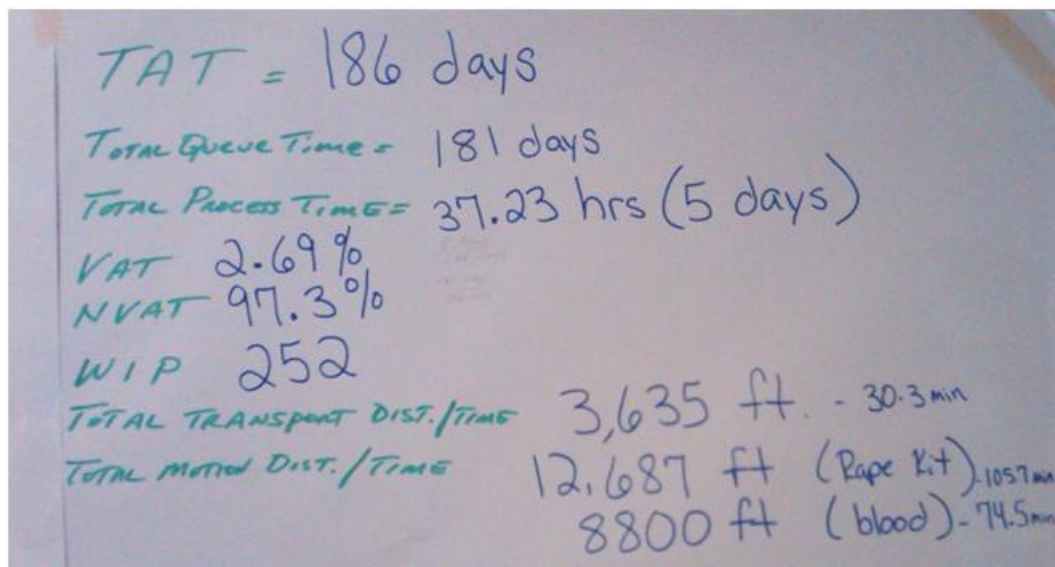 TAT = 186 days
TOTAL QUEUE TIME = 181 days
TOTAL PROCESS TIME = 37.23 hrs (5 days)
VAT 2.69%
NVAT 97.3%
WIP 252
TOTAL TRANSPORT DIST./TIME 3,635 ft. - 30.3 min
TOTAL MOTION DIST./TIME 12,687 ft (Rape Kit) - 105.7 min
8800 ft (blood) - 74.5 min